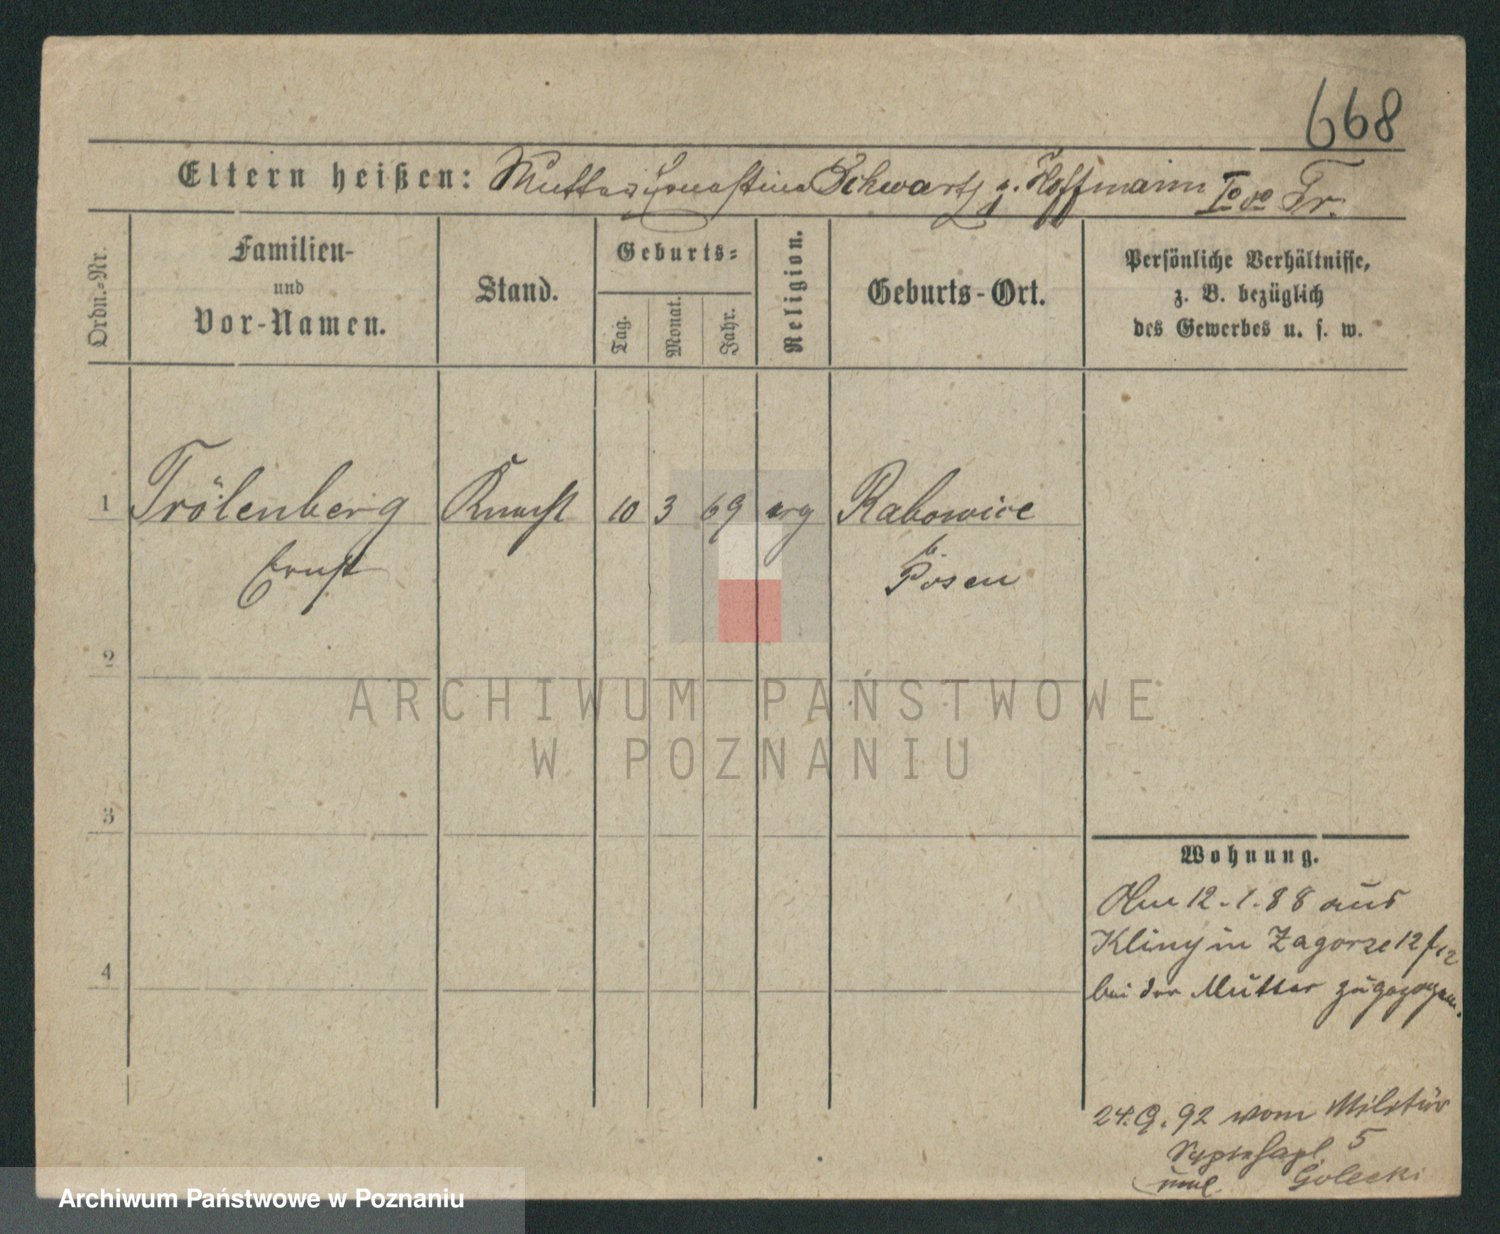 668
Eltern heißen: Mutter Ernestine Schwartz g. Hoffmann Io vo Tr.
Ordn.-Nr.
Familien-
und
Vor-Namen.
Stand.
Geburts-
Tag.
Monat.
Jahr.
Religion.
Geburts-Ort.
Persönliche Verhältnisse,
z. B. bezüglich
des Gewerbes u. s. w.
1 Trölenberg Knecht 10 3 69 evg Rabowice
Ernst
b.
Posen
2
ARCHIWUM PAŃSTWOWE
W POZNANIU
3
Wohnung.
12.1.88 aus
Kliny in Zagorze 12
4
bei der Mutter zugezogen.
24.9.92 vom Militär
5
Golecki
Archiwum Państwowe w Poznaniu